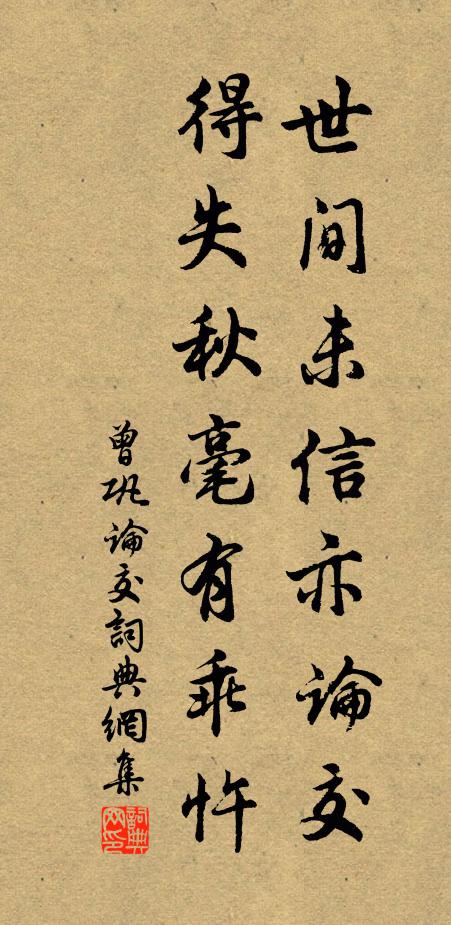 世间未信亦論交
得失秋毫有乖忤
曾巩論交詞典網集
詞典网印